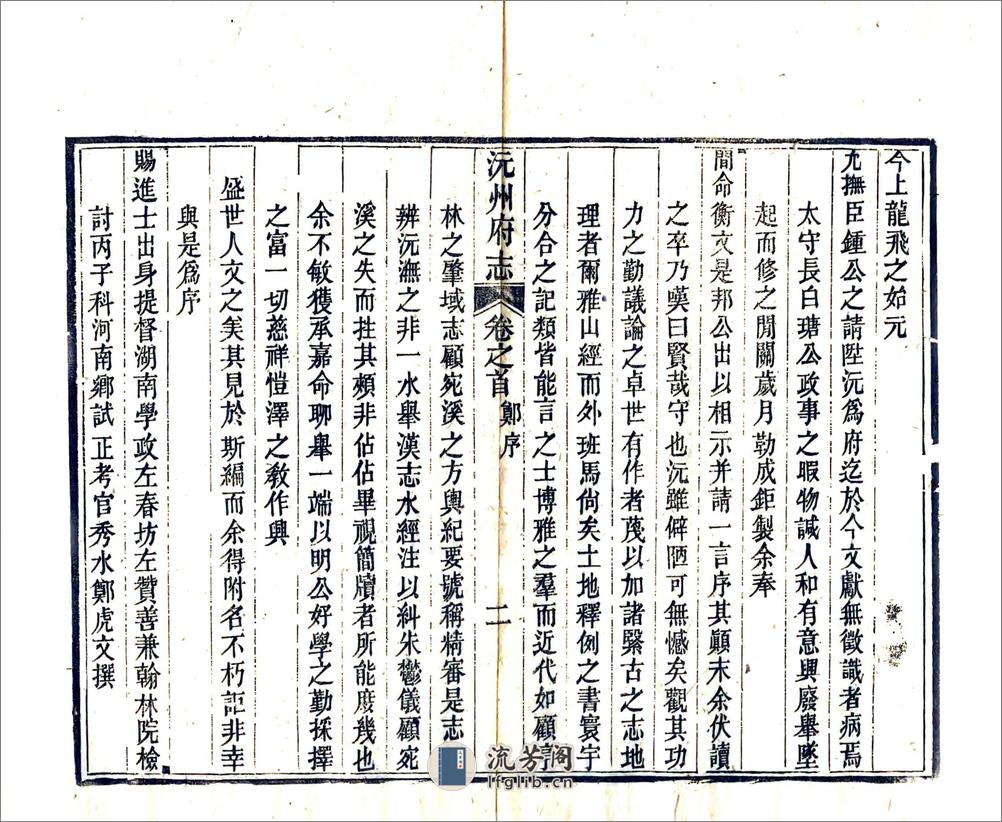 今上龍飛之始元
允撫臣鍾公之請陞沅爲府迄於今文獻無徵識者病焉
太守長白瑭公政事之暇物諴人和有意興廢舉墜
起而修之閒關歲月勒成鉅製余奉
簡命衡文是邦公出以相示并請一言序其顛末余伏讀
之卒乃嘆曰賢哉守也沅雖僻陋可無憾矣觀其功
力之勤議論之卓世有作者蔑以加諸緊古之志地
理者爾雅山經而外班馬尙矣土地釋例之書寰宇
分合之記類皆能言之士博雅之羣而近代如顧亭
沅州府志 卷之首 鄭序 二
林之肇域志顧宛溪之方輿紀要號稱精審是志
辨沅潕之非一水舉漢志水經注以糾朱鬱儀顧宛
溪之失而抂其頰非佔佔畢視簡牘者所能庶幾也
余不敏獲承嘉命聊舉一端以明公好學之勤採擇
之富一切慈祥愷澤之敎作興
盛世人文之美其見於斯編而余得附名不朽詎非幸
與是爲序
賜進士出身提督湖南學政左春坊左贊善兼翰林院檢
討丙子科河南鄉試正考官秀水鄭虎文撰
流芳閣
lfglib.cn